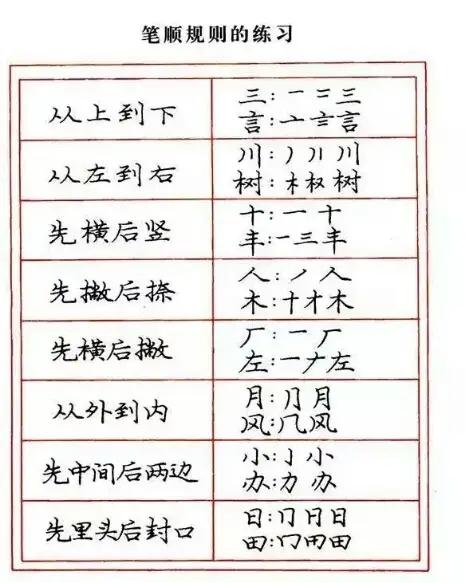 笔顺规则的练习
从上到下
三:一 二 三
言:亠 言 言
从左到右
川:丿 川 川
树:木 权 树
先横后竖
十:一 十
丰:一 三 丰
先撇后捺
人:丿 人
木:十 才 木
先横后撇
厂:一 厂
左:一 ナ 左
从外到内
月:冂 月
风:几 风
先中间后两边
小:亅 小
办:力 办
先里头后封口
日:冂 日 日
田:冂 用 田